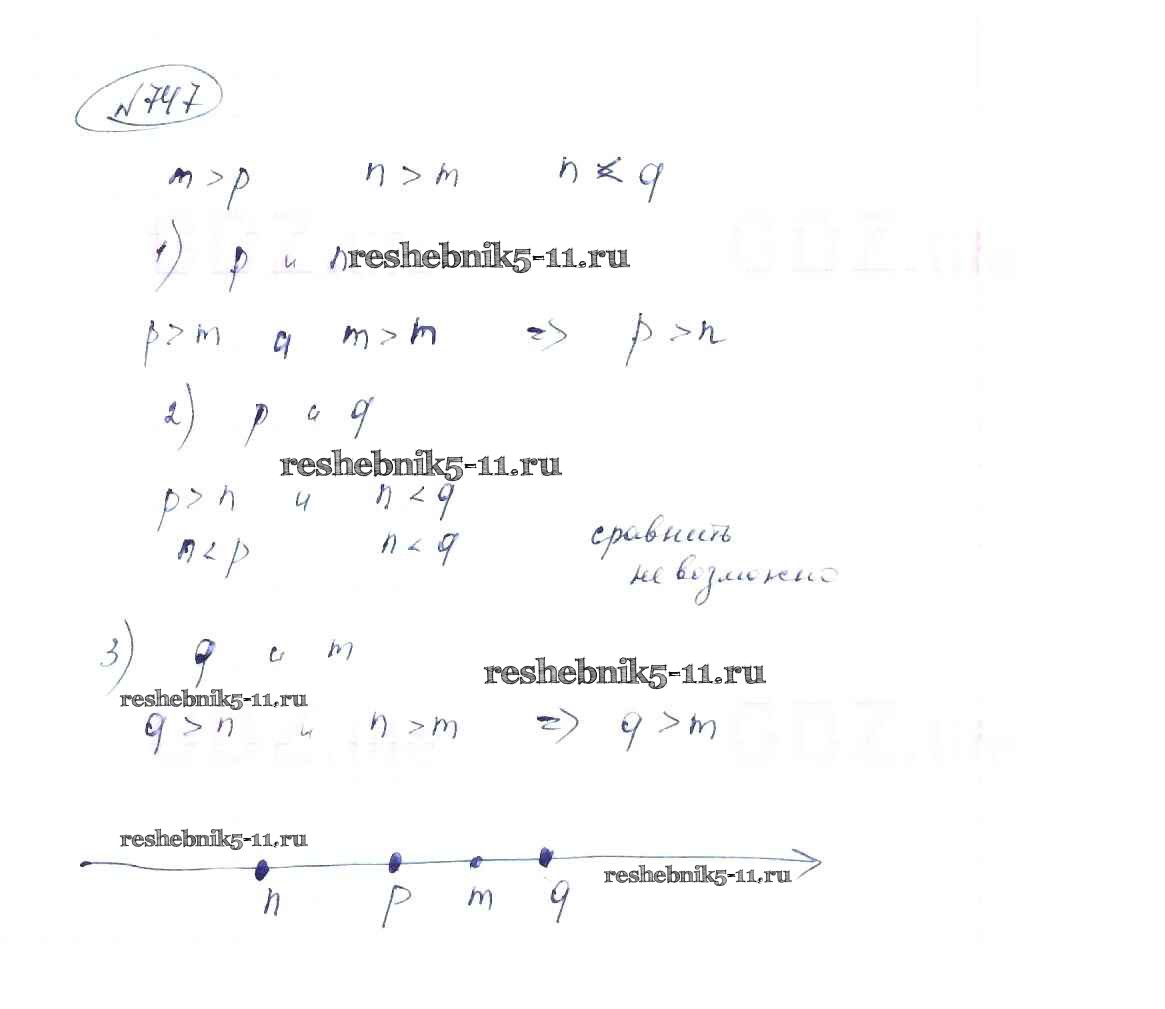 №747
m > p n > m n < q
1) p и n reshebnik5-11.ru
p > m а m > m => p > n
2) p и q
reshebnik5-11.ru
p > n и n < q
n < p n < q сравнить
невозможно
3) q и m reshebnik5-11.ru
reshebnik5-11.ru
q > n и n > m => q > m
reshebnik5-11.ru
reshebnik5-11.ru
n p m q